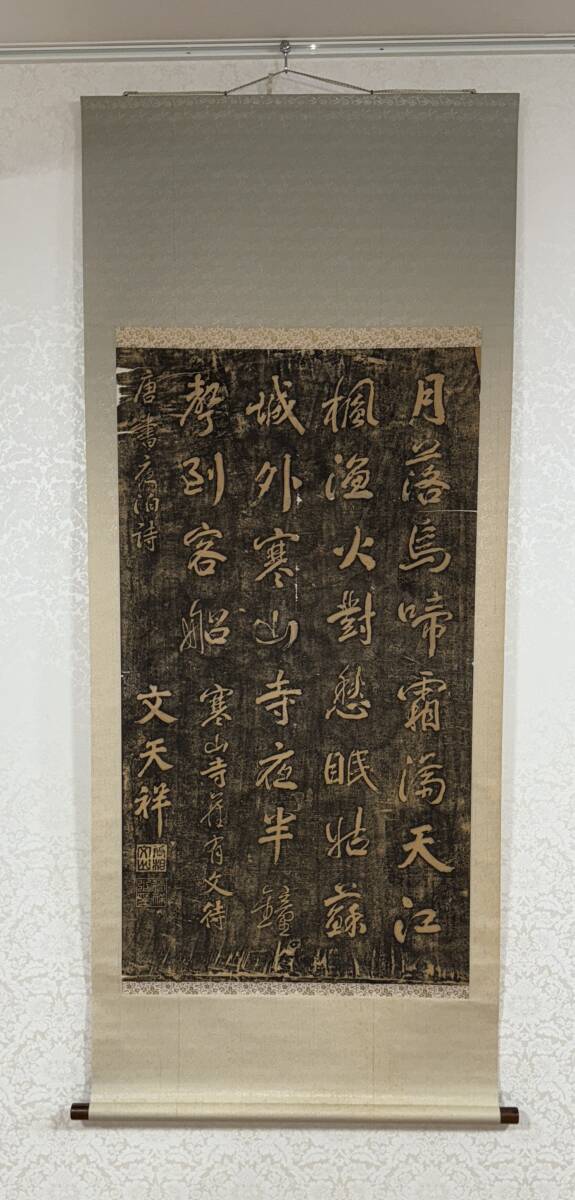 月落烏啼霜滿天江
楓漁火對愁眠姑蘇
城外寒山寺夜半鐘
聲到客船
寒山寺舊有文待
唐書泊詩
文天祥